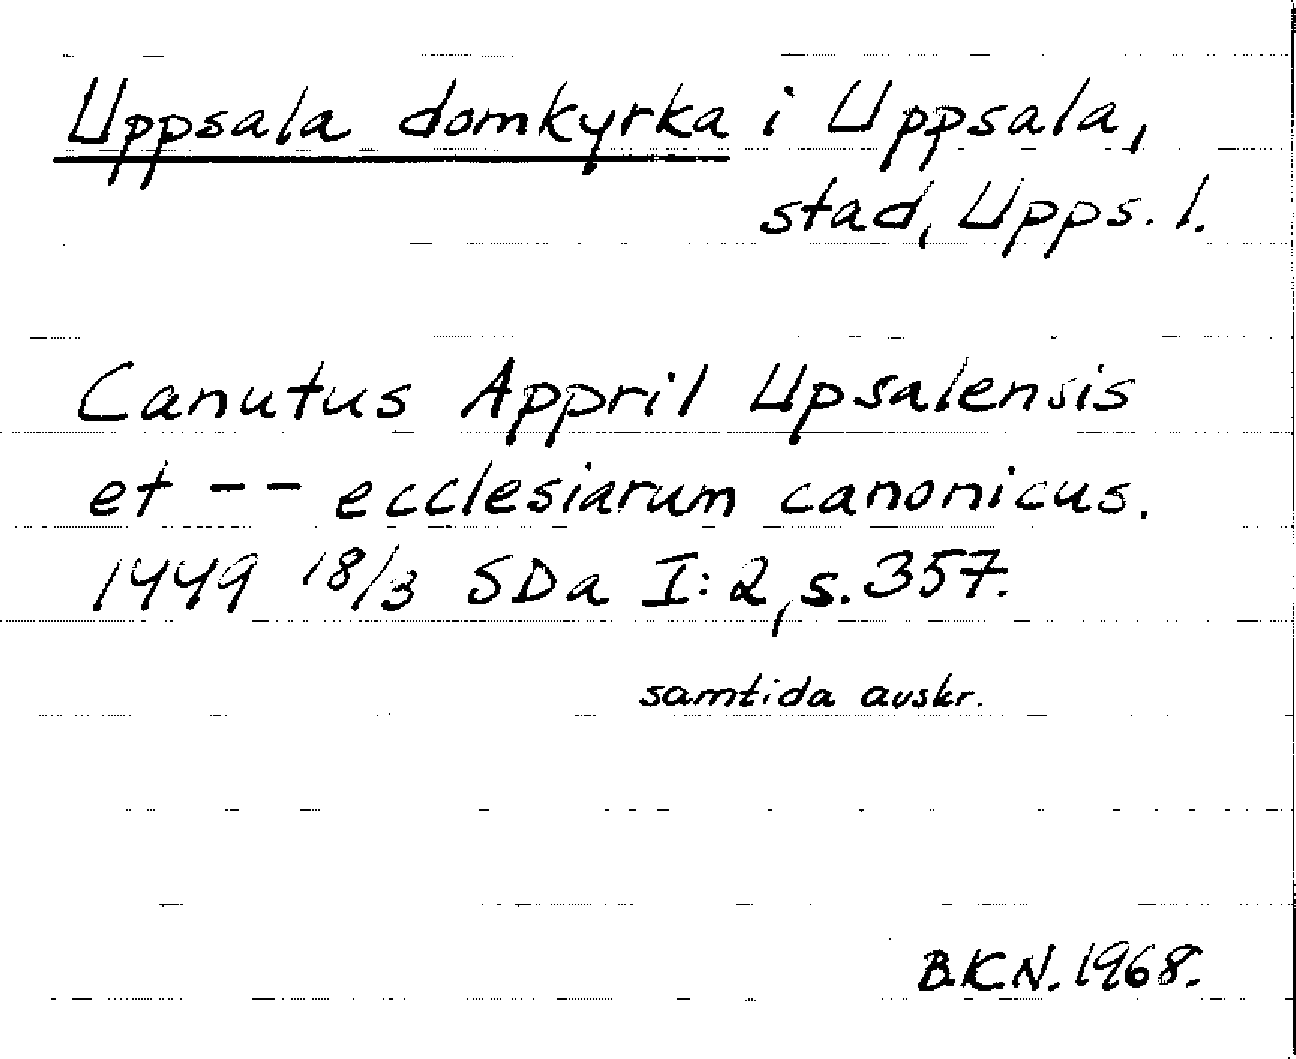 Uppsala domkyrka i Uppsala,
stad, Upps. l.
Canutus Appril Upsalensis
et -- ecclesiarum canonicus.
1449 18/3 SDa I:2, s. 357.
samtida avskr.
B.K.N. 1968.